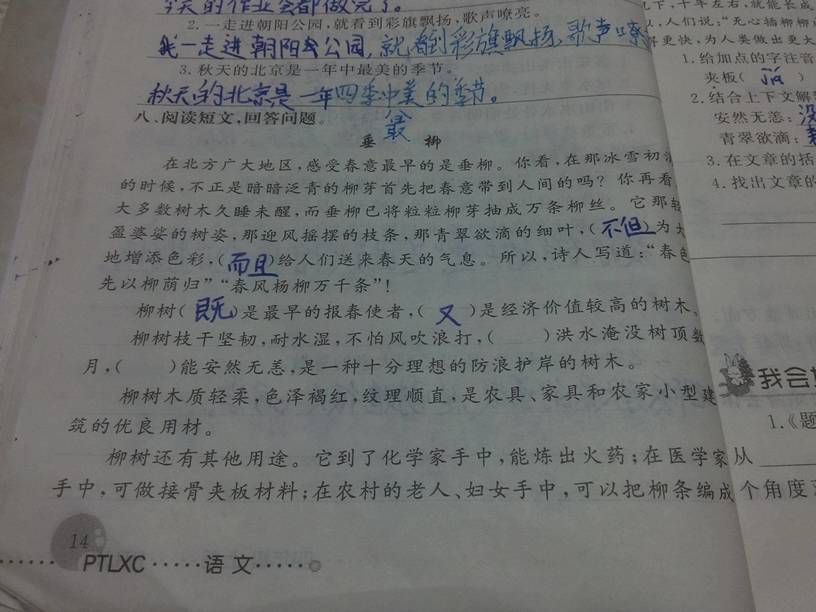 今天的作业会都做完了。
2.一走进朝阳公园,就看到彩旗飘扬,歌声嘹亮。
我一走进朝阳公园,就看到彩旗飘扬,歌声嘹
3.秋天的北京是一年中最美的季节。
秋天的北京是一年四季中美的季节。
最
八、阅读短文,回答问题。
垂 柳
在北方广大地区,感受春意最早的是垂柳。你看,在那冰雪初
的时候,不正是暗暗泛青的柳芽首先把春意带到人间的吗?你再看
大多数树木久睡未醒,而垂柳已将粒粒柳芽抽成万条柳丝。它那轻
盈婆娑的树姿,那迎风摇摆的枝条,那青翠欲滴的细叶,(不但)为大
地增添色彩,(而且)给人们送来春天的气息。所以,诗人写道:“春色
先以柳荫归”“春风杨柳万千条”!
柳树(既)是最早的报春使者,(又)是经济价值较高的树木。
柳树枝干坚韧,耐水湿,不怕风吹浪打,( )洪水淹没树顶数
月,( )能安然无恙,是一种十分理想的防浪护岸的树木。
柳树木质轻柔,色泽褐红,纹理顺直,是农具、家具和农家小型建
筑的优良用材。
柳树还有其他用途。它到了化学家手中,能炼出火药;在医学家
手中,可做接骨夹板材料;在农村的老人、妇女手中,可以把柳条编成
14
PTLXC 语文
下,十年左右,就能长成
人们说:“无心插柳柳
更快,为人类做出更大
1.给加点的字注音
夹板( )
2.结合上下文解
安然无恙:没
青翠欲滴:
3.在文章的括
4.找出文章的
我会
1.《题
从
个角度